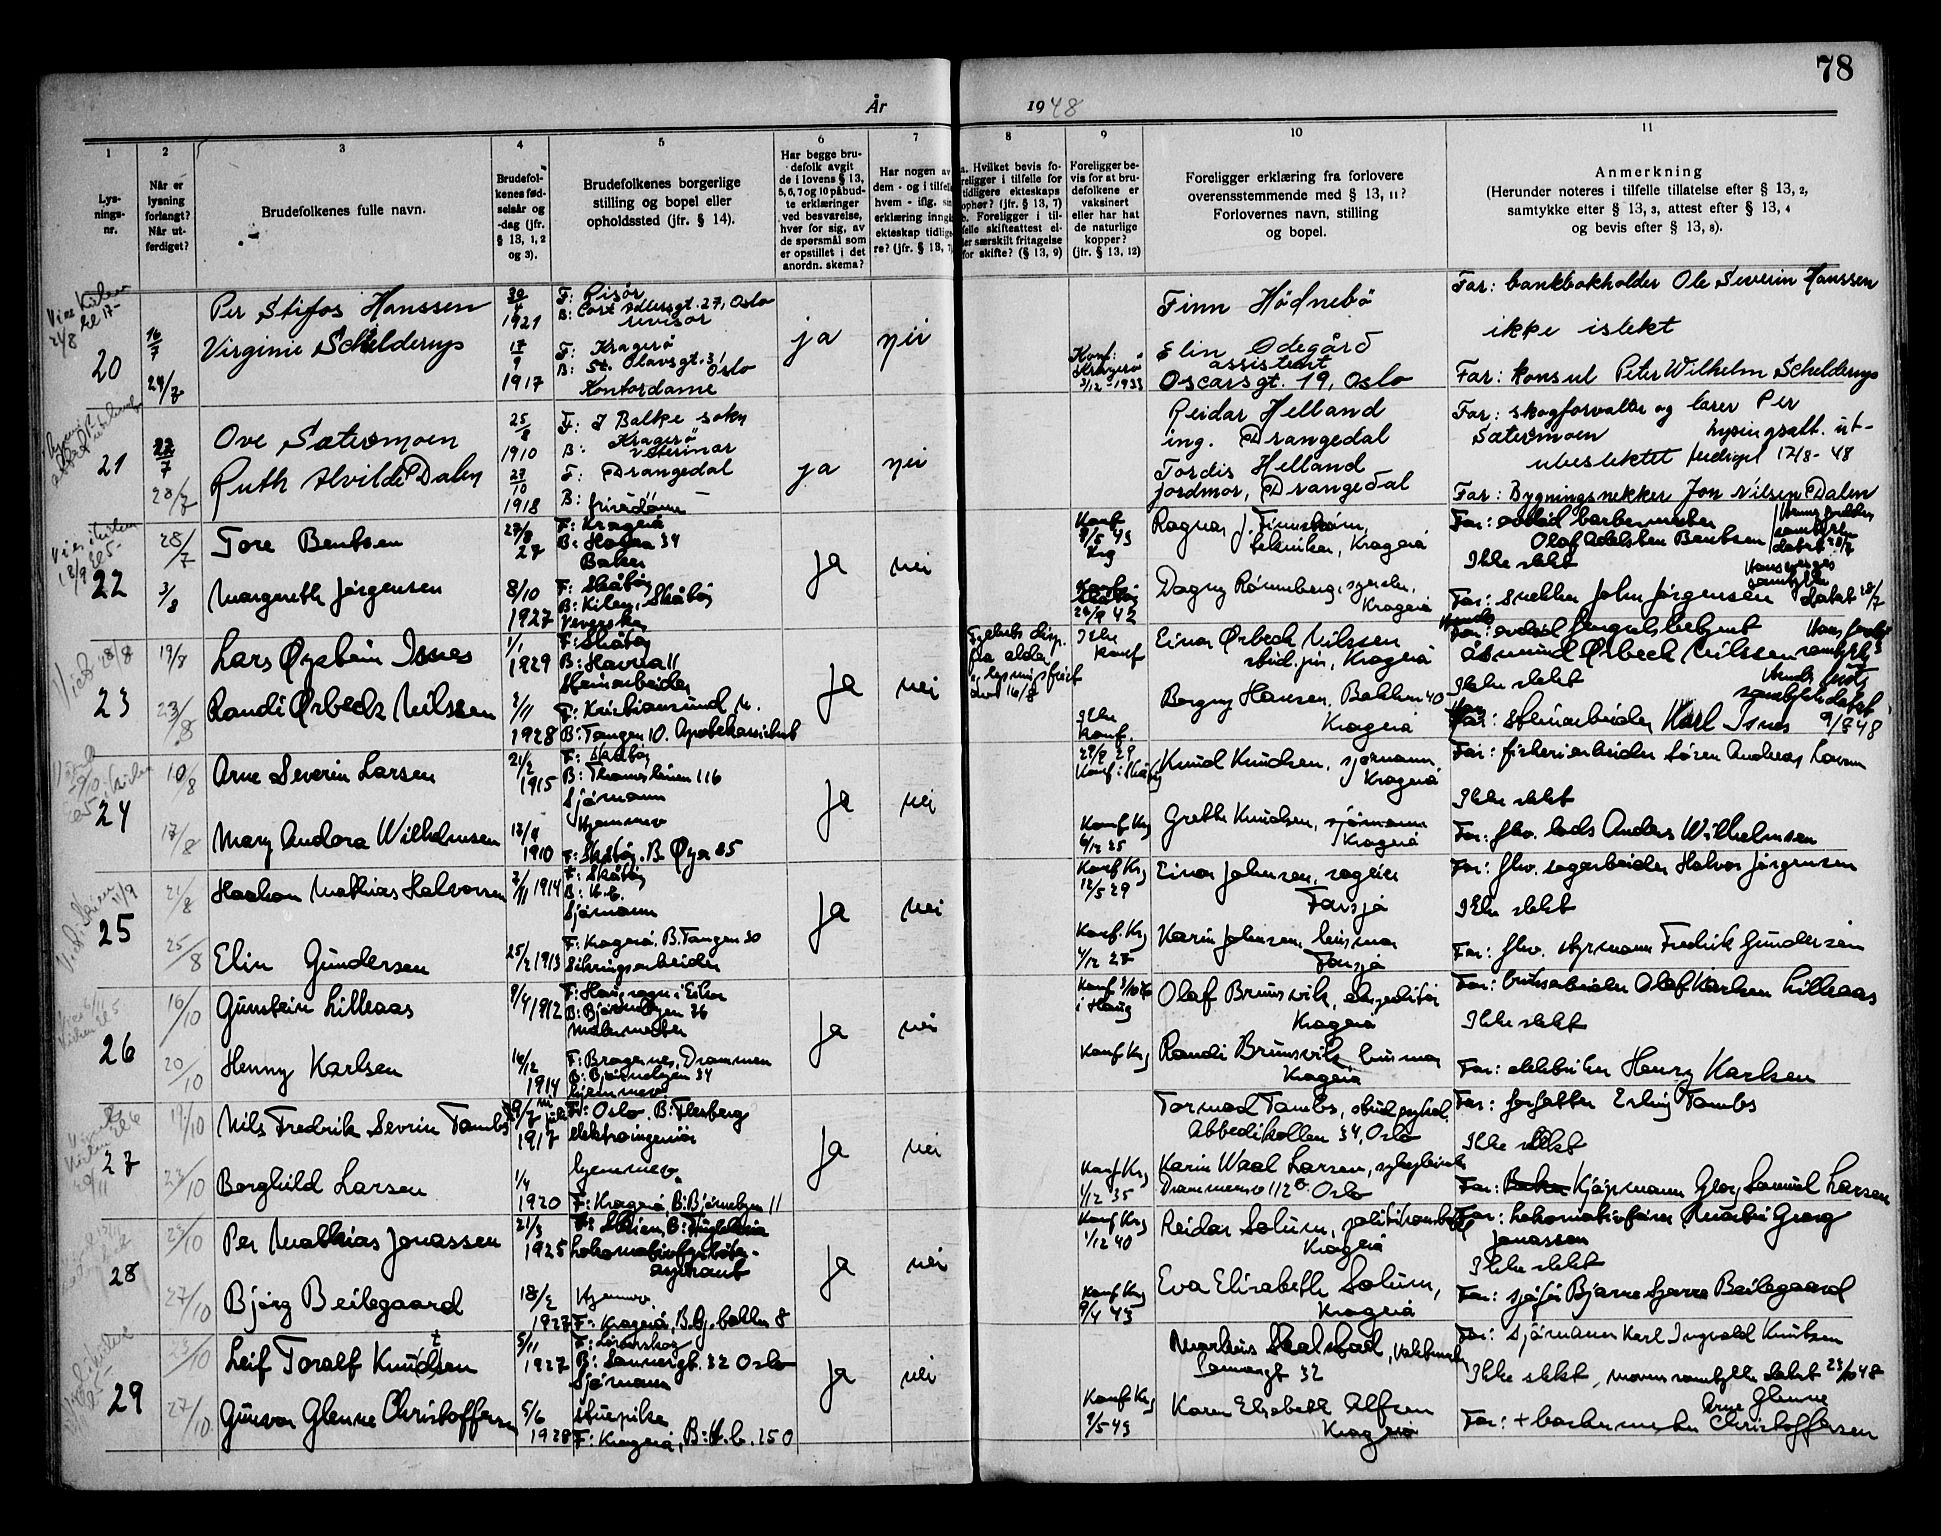 78
År 1948
1 2 3 4 5 6 7 8 9 10 11
Lys-
nings-
nr.
Når er
lysning
forlangt?
Når ut-
ferdiget?
Brudefolkenes fulle navn.
Brudefol-
kenes fød-
selsår og
-dag (jfr.
§ 13, 1, 2
og 3).
Brudefolkenes borgerlige
stilling og bopel eller
opholdssted (jfr. § 14).
Har begge bru-
defolk avgit
de i lovens § 13,
5, 6, 7 og 10 påbud-
te erklæringer
ved besvarelse,
hver for sig, av
de spørsmål som
er opstillet i det
anordn. skema?
Har nogen av
dem - og i tilfelle
hvem - iflg. sin
erklæring inngå
ekteskap tidlig
re? (jfr. § 13, 7)
a. Hvilket bevis fo-
religger i tilfelle for
tidligere ekteskaps
ophør? (jfr. § 13, 7)
b. Foreligger i til-
felle skifteattest el-
ler særskilt fritagelse
for skifte? (§ 13, 9)
Foreligger be-
vis for at bru-
defolkene er
vaksinert
eller har hat
de naturlige
kopper?
(jfr. § 13, 12)
Foreligger erklæring fra forlovere
overensstemmende med § 13, 11?
Forlovernes navn, stilling
og bopel.
Anmerkning
(Herunder noteres i tilfelle tillatelse efter § 13, 2,
samtykke efter § 13, 3, attest efter § 13, 4
og bevis efter § 13, 8).
20
16/7
24/7
Per Stifos Hanssen
1921
F: Risør
B: Cort Adlersgt. 27, Oslo
revisor
Virginie Schelderup
17/9
1917
F: Kragerø
B: St. Olavsgt. 3, Oslo
Kontordame
ja
nei
Konf:
Kragerø
3/12-1933
Finn Hødnebø
Elin Ødegård
assistent
Oscarsgt. 19, Oslo
Far: bankbokholder Ole Severin Hanssen
ikke islekt
Far: konsul Peter Wilhelm Schelderup
21
22/7
28/7
Ove Sætermoen
25/8
1910
F: I Balke sokn
B: Kragerø
veterinær
Ruth Alvilde Dalen
27/10
1918
F: Drangedal
B:
ja
nei
Reidar Helland
ing. Drangedal
Tordis Helland
jordmor, Drangedal
Far: skogforvalter og lærer Per
Sætermoen lysingsatt. ut-
ubeslektet ferdiget 17/8-48
Far: Bygningsnekker Jon Nilsen Dalen
22
28/7
3/8
Tore Bentsen
27/8
27
F: Kragerø
34
Baker
Margareth Jørgensen
8/10
1927
F: Skåtøy
B: Kilen, Skåtøy
Veverske
ja
nei
Konf
9/5 43
Krg
Ragnar J.
tekniker, Kragerø
Dagny Rønneberg,
Kragerø
Far: avdød barbermester
Olaf Adelsten Bentsen
Ikke slekt
Far: snekker John Jørgensen
samtykke
datert 28/7
23
19/8
23/8
Lars Øystein Isnes
1/1
1929
F: Skåtøy
B: Havna 11
Steinarbeider
Randi Ørbeck Nilssen
2/11
1928
F: Kristiansund N.
B: Tangen 10. Apotekassistent
ja
nei
Fylkets disp.
fra alder,
lysningsfrist
16/8
Ikke
konf
Ikke
konf.
Einar Ørbeck Nilssen
stud. jur, Kragerø
Borgny Hansen, Bakken 40
Kragerø
Far: avdød fengselsbetjent
Åsmund Ørbeck Nilssen
Ikke slekt
Far: steinarbeider Karl Isnes 9/8 48
24
10/8
17/8
Arne Severin Larsen
21/2
1915
F: Skåtøy
B: Thomesheien 116
Sjømann
Mary Andora Wilhelmsen
13/9
1910
Hjemmev
F: Skåtøy. B. Øya 85
ja
nei
29/9 29
Konf: Skåtøy
Konf. Krg
6/12 25
Knud Knudsen, sjømann
Kragerø
Grethe Knudsen, sjømann
Kragerø
Far: fiskeriarbeider Søren Andreas Larsen
Ikke slekt
Far: fhv. lods Anders Wilhelmsen
25
21/8
25/8
Haakon Mathias Halvorsen
3/11 1914
F: Skåtøy
Sjømann
Elin Gundersen
25/2 1913
F: Kragerø. B. Tangen 30
Sikringsarbeider
ja
nei
Konf Krg
12/5 29
Konf. Krg
4/12 27
Einar Johnsen, sageier
Farsjø
Karin Johnsen, husmor
Farsjø
Far: fhv. sagarbeider Halvor Jørgensen
Ikke slekt
Far: fhv. styrmann Fredrik Gundersen
26
16/10
20/10
Gunstein Lilleaas
9/4 1912
F: Haug sogn i Eiker
B: Bjørnebyen 36
Malermester
Henny Karlsen
16/12
1914
F: Bragernes, Drammen
B: Bjørnebyen 34
hjemmev.
ja
nei
i Haug
Konf Krg
Olaf Brunsvik, ekspeditør
Kragerø
Randi Brunsvik husmor
Kragerø
Far: bruksarbeider Olaf Karlsen Lilleaas
Ikke slekt
Far: elektriker Henry Karlsen
27
19/10
23/10
Nils Fredrik Sevrin Tambs
9/7 juli
1917
F: Oslo. B: Flesberg
elektroingeniør
Borghild Larsen
1/4
1920
hjemmev.
F: Kragerø, B: Bjørnebyen 11
ja
nei
Konf Krg
1/12 35
Tormod Tambs, stud psykol.
Abbedikollen 34, Oslo
Karin Waal Larsen,
Drammensv 112 Oslo
Far: forfatter Erling Tambs
Ikke slekt
Far: Kjøpmann Georg Samuel Larsen
28
23/10
27/10
Per Mathias Jonassen
21/3
1925
F: Skien, B:
Lokomotivfyrbøter-
aspirant
Bjørg Beilegaard
18/2
1927
Hjemmev.
F: Kragerø, B. Bj. bakken 8
ja
nei
Konf Krg
1/12 40
Konf Krg
9/4 43
Reidar Solum, politikonstabel
Kragerø
Eva Elisabeth Solum,
Kragerø
Far: Lokomotivfører Martin Georg
Jonassen
Ikke slekt
Far: sjåfør Bjarne Sverre Beilegaard
29
23/10
27/10
Leif Toralf Knudtsen
5/11
1927
F: Lørenskog
B: Sannergt. 32 Oslo
Sjømann
Gunvor Glenne Christoffersen
5/6
1928
stuepike
F: Kragerø, B: H.b. 250
ja
nei
Konf Krg
9/5 43
Markus Skalstad, Vaktmester
Sannergt 32
Karen Elisabeth Alfsen
Kragerø
Far: sjømann Karl Ingvald Knutsen
Ikke slekt, morens samtykke datert 23/10 48
Far: + barbermester Arne Glenne Christoffersen